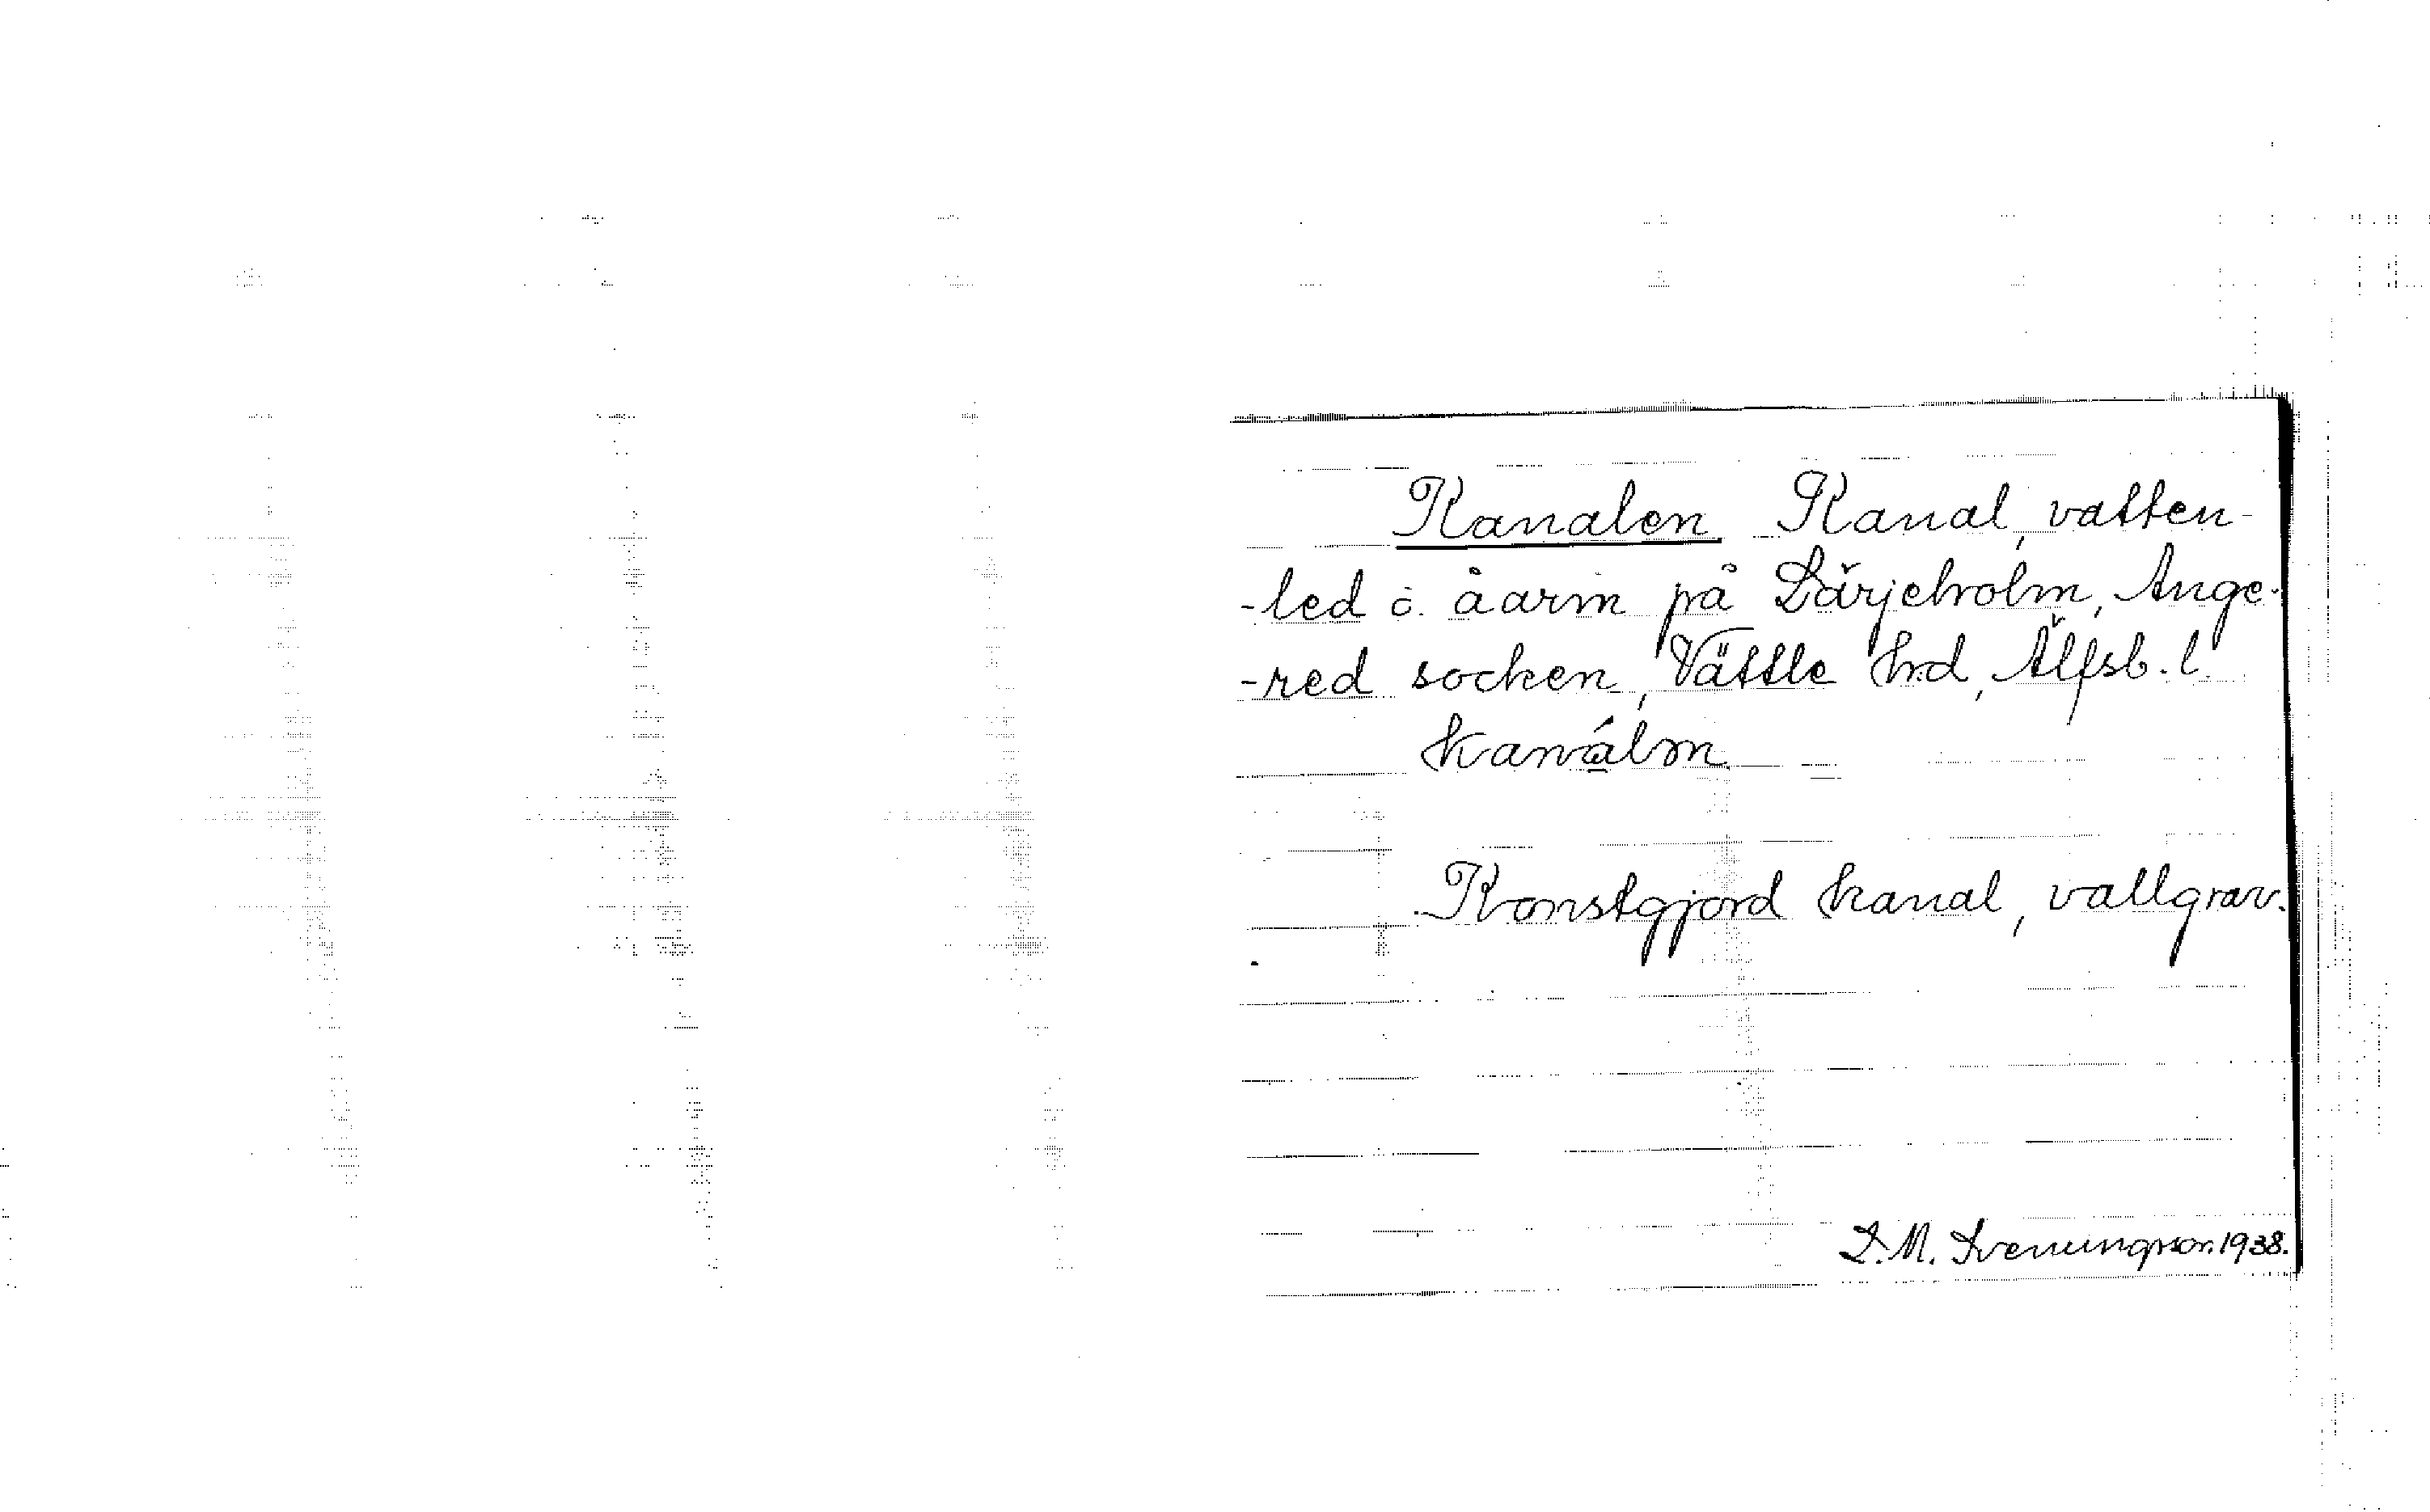 Kanalen Kanal, vatten-
-led o. åarm på Lärjeholm, Ange-
-red socken, Vättle hd, Älfsb. l.
kanálm
Konstgjord kanal, vallgrav.
D.M. Sveningsson. 1938.